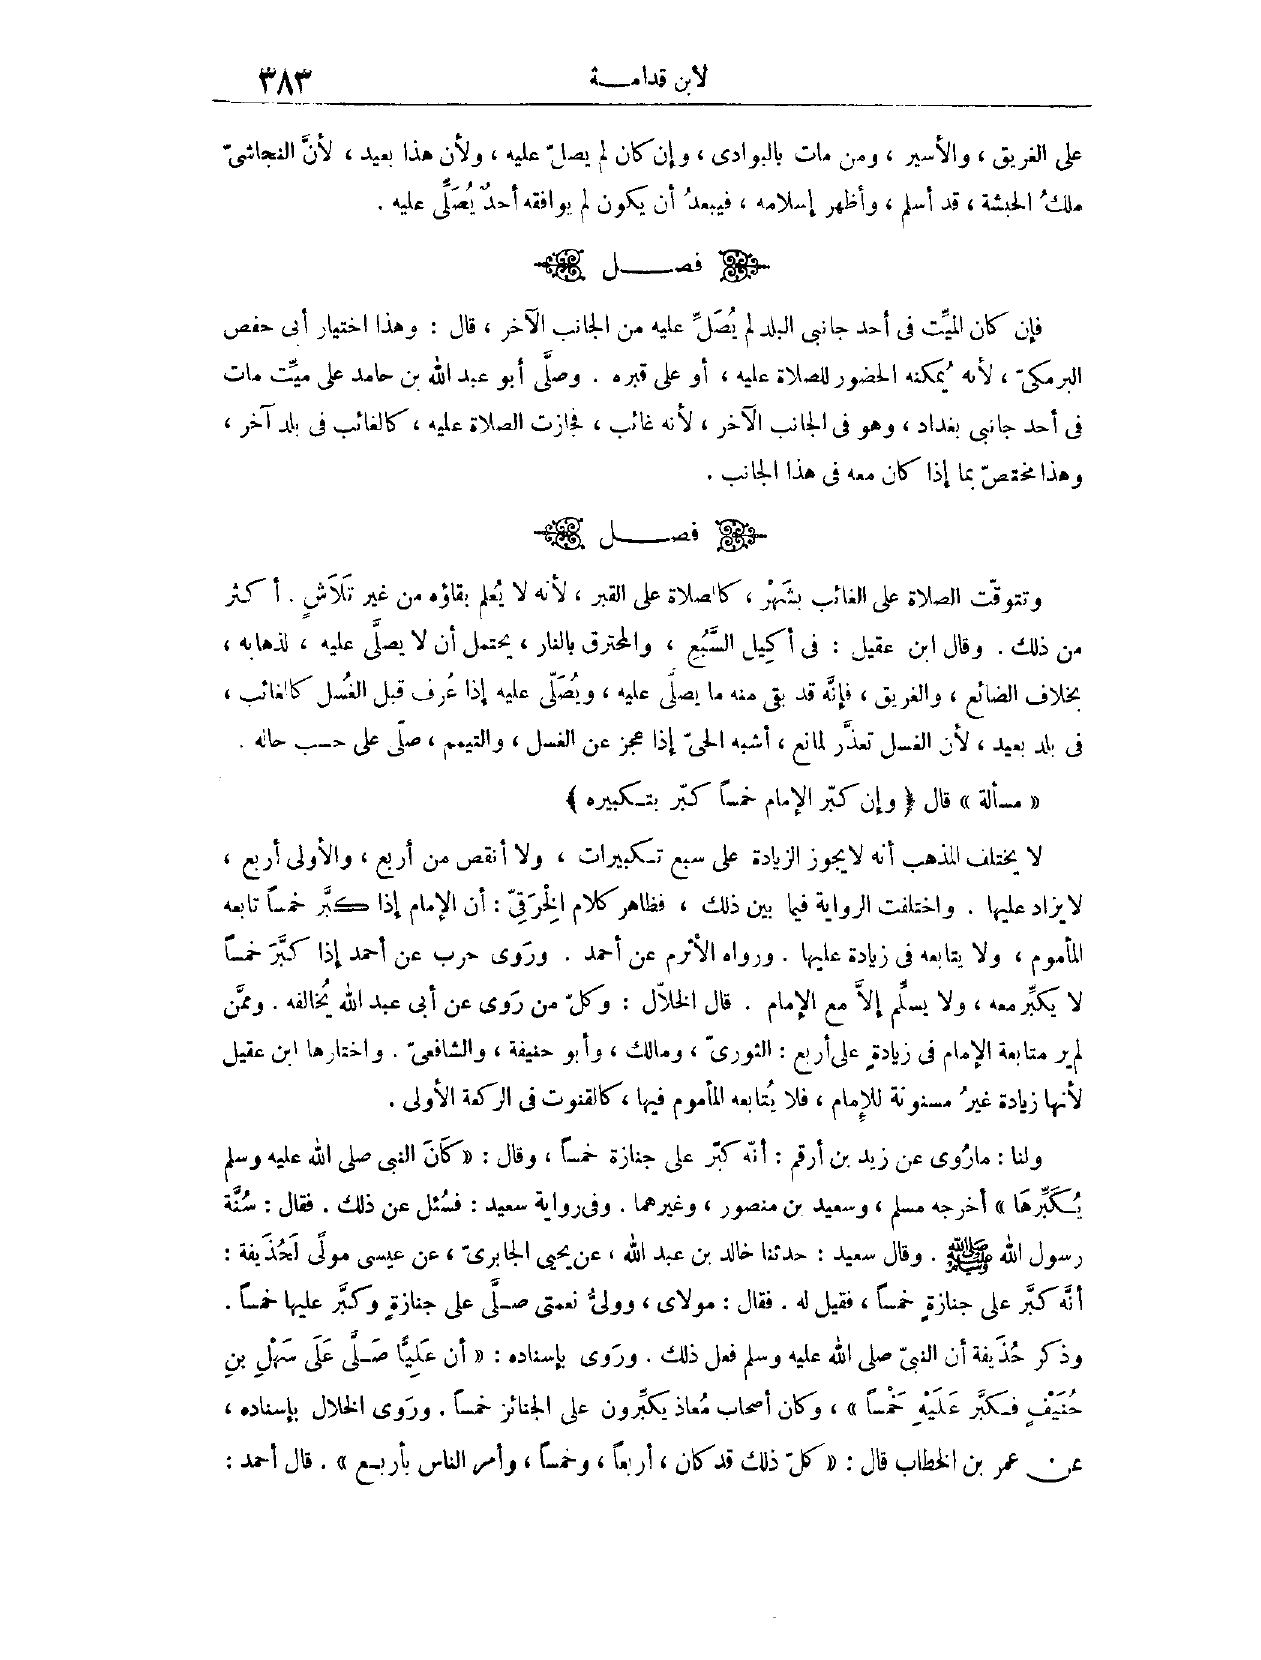 لابن قدامــة ٣٨٣
على الغريق ، والأسير ، ومن مات بالبوادى ، وإن كان لم يصلّ عليه ، ولأن هذا بعيد ، لأنَّ النجاشىّ
ملكُ الحبشة ، قد أسلم ، وأظهر إسلامه ، فيبعدُ أن يكون لم يوافقه أحدٌ يُصَلِّى عليه .
فصــــل
فإن كان الميِّت فى أحد جانبى البلد لم يُصَلِّ عليه من الجانب الآخر ، قال : وهذا اختيار أبى حفص
البرمكىّ ، لأنه يُمكنه الحضور للصلاة عليه ، أو على قبره . وصلَّى أبو عبد الله بن حامد على ميِّت مات
فى أحد جانبى بغداد ، وهو فى الجانب الآخر ، لأنه غائب ، فجازت الصلاة عليه ، كالغائب فى بلد آخر ،
وهذا مختصّ بما إذا كان معه فى هذا الجانب .
فصــــل
وتتوقّت الصلاة على الغائب بشَهْرٍ ، كالصلاة على القبر ، لأنه لا يُعلم بقاؤه من غير تَلَاَشٍ . أكثر
من ذلك . وقال ابن عقيل : فى أكِيل السَّبُعِ ، والمحترق بالنار ، يحتمل أن لا يصلَّى عليه ، لذهابه ،
بخلاف الضائع ، والغريق ، فإنَّه قد بقى منه ما يصلَّى عليه ، ويُصَلَّى عليه إذا عُرف قبل الغُسل كالغائب ،
فى بلد بعيد ، لأن الغسل تعذَّر لمانع ، أشبه الحىّ إذا عجز عن الغسل ، والتيمم ، صلّى على حسب حاله .
« مسألة » قال ﴿ وإن كبّر الإمام خمساً كبّر بتكبيره ﴾
لا يختلف المذهب أنه لايجوز الزيادة على سبع تكبيرات ، ولا أنقص من أربع ، والأولى أربع ،
لايزاد عليها . واختلفت الرواية فيما بين ذلك ، فظاهر كلام الِخْرَقِىّ : أن الإمام إذا كبَّر خمساً تابعه
المأموم ، ولا يتابعه فى زيادة عليها . ورواه الأثرم عن أحمد . ورَوى حرب عن أحمد إذا كبَّرَ خمساً
لا يكبِّر معه ، ولا يسلِّم إلاَّ مع الإمام . قال الخلاّل : وكلّ من رَوى عن أبى عبد الله يُخالفه . وممَّن
لم ير متابعة الإمام فى زيادةٍ على أربع : الثورىّ ، ومالك ، وأبو حنيفة ، والشافعىّ . واختارها ابن عقيل
لأنها زيادة غيرُ مسنونة للإمام ، فلا يُتابعه المأموم فيها ، كالقنوت فى الركعة الأولى .
ولنا : مارُوى عن زيد بن أرقم : أنّه كبّر على جنازة خمساً ، وقال : « كَانَ النبى صلى الله عليه وسلم
يُكَبِّرهَا » أخرجه مسلم ، وسعيد بن منصور ، وغيرهما . وفى رواية سعيد : فسُئل عن ذلك . فقال : سُنَّة
رسول الله ﷺ . وقال سعيد : حدثنا خالد بن عبد الله ، عن يحيى الجابرىّ ، عن عيسى مولًى لَحُذَيفة :
أنَّه كبَّر على جنازةٍ خمساً ، فقيل له . فقال : مولاى ، وولىُّ نعمتى صلَّى على جنازةٍ وكبَّر عليها خمساً .
وذكر حُذَيفة أن النبىّ صلى الله عليه وسلم فعل ذلك . ورَوى بإسناده : « أن عَلِيًّا صَلَّى عَلَى سَهْلِ بنِ
حُنَيْفٍ فكبَّر عَلَيْهِ خَمْساً » ، وكان أصحاب مُعاذ يكبِّرون على الجنائز خمساً . ورَوى الخلال بإسناده ،
عن عمر بن الخطاب قال : « كلّ ذلك قد كان ، أربعاً ، وخمساً ، وأمر الناس بأربع » . قال أحمد :